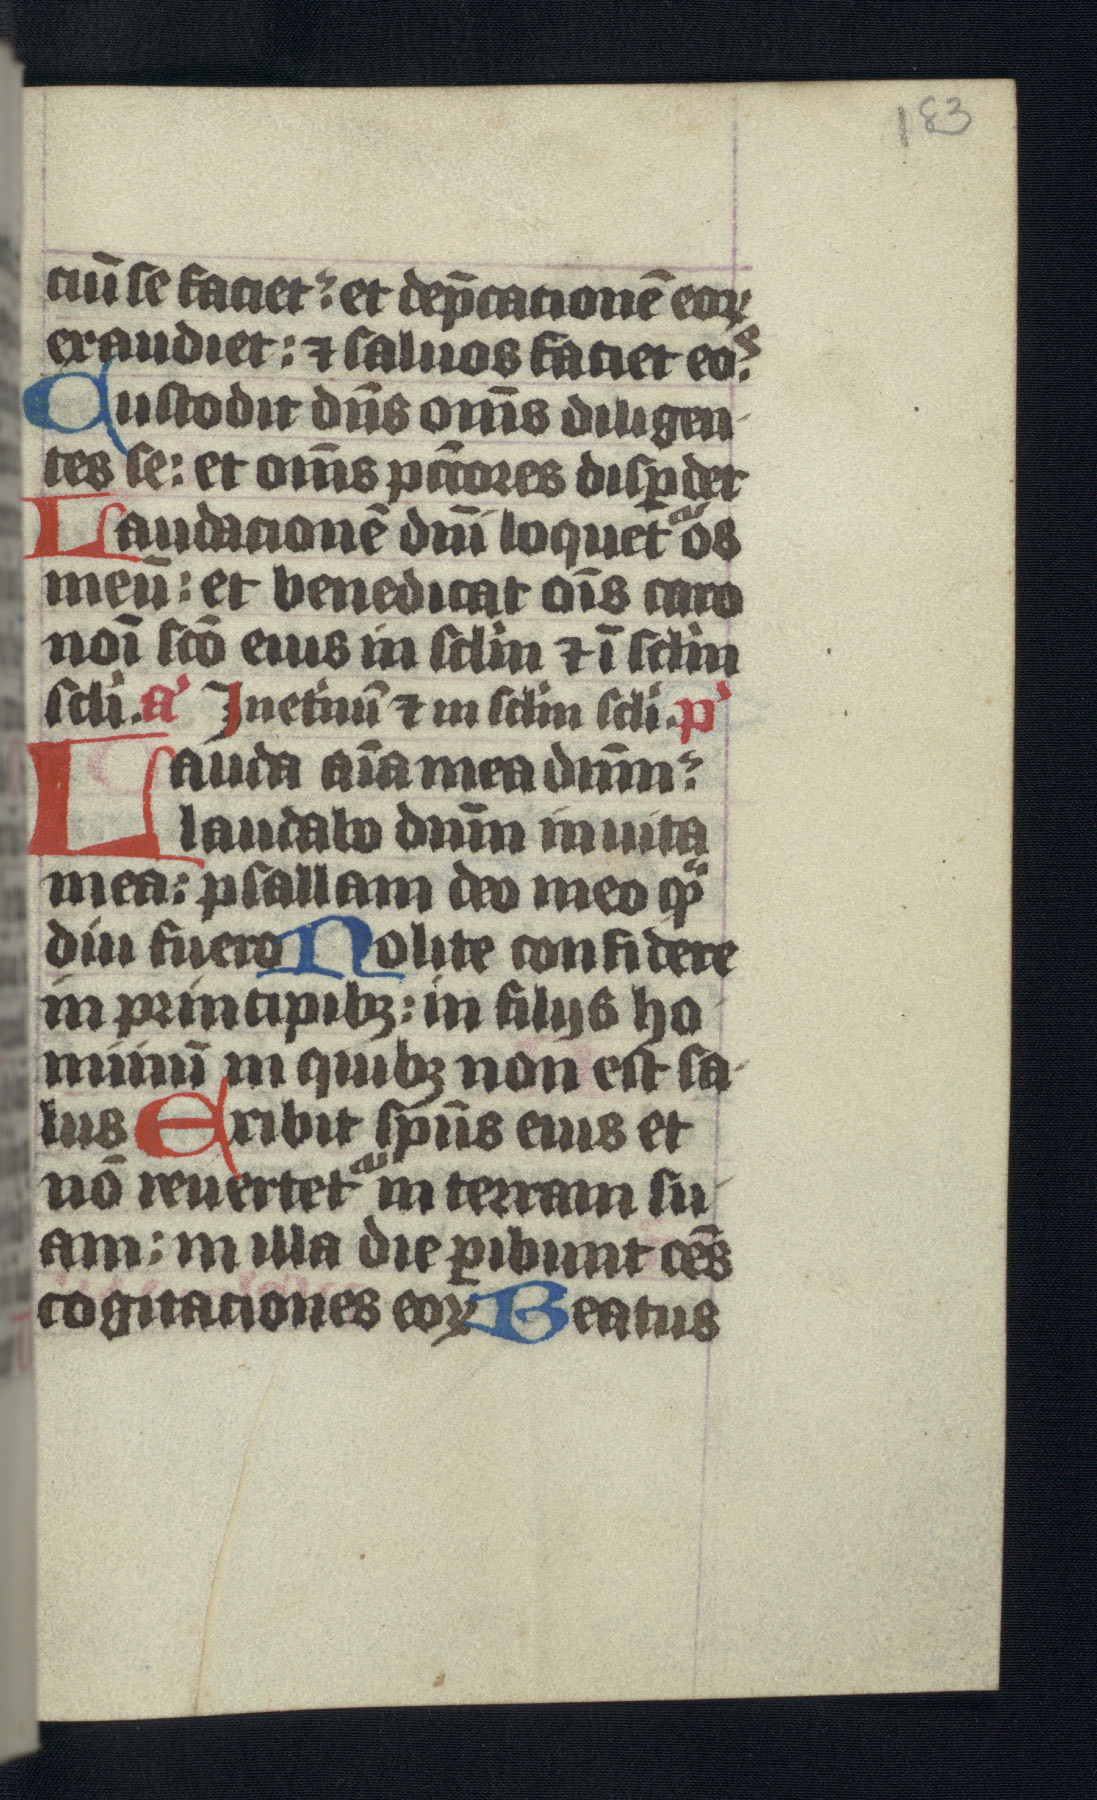 183
ciū se faciet: et dep̄cationē eoꝝ
exaudiet: ⁊ saluos faciet eos.
Custodit dn̄s om̄s diligen-
tes se: et om̄s pc̄cōres disꝑdet
Laudacionē dn̄i loquetᷓ os
meū: et benedicat oī̄s caro
noī sc̄o eius in sclm̄ ⁊ ī sclm̄
scli̍. a̍ Inet̍nū ⁊ in sclm̍ scli̍. p̍
Lauda aīa mea dn̄m:
laudabo dn̄m in uita
mea: psallam deo meo qᷓ
diu fuero Nolite confidere
in principibꝫ: in filijs ho
minū in quibꝫ non est sa-
lus Exibit sp̄us eius et
nō reuertetᷓ in terram su-
am: in illa die ꝑibunt oēs
cogitationes eoꝝ Beatus